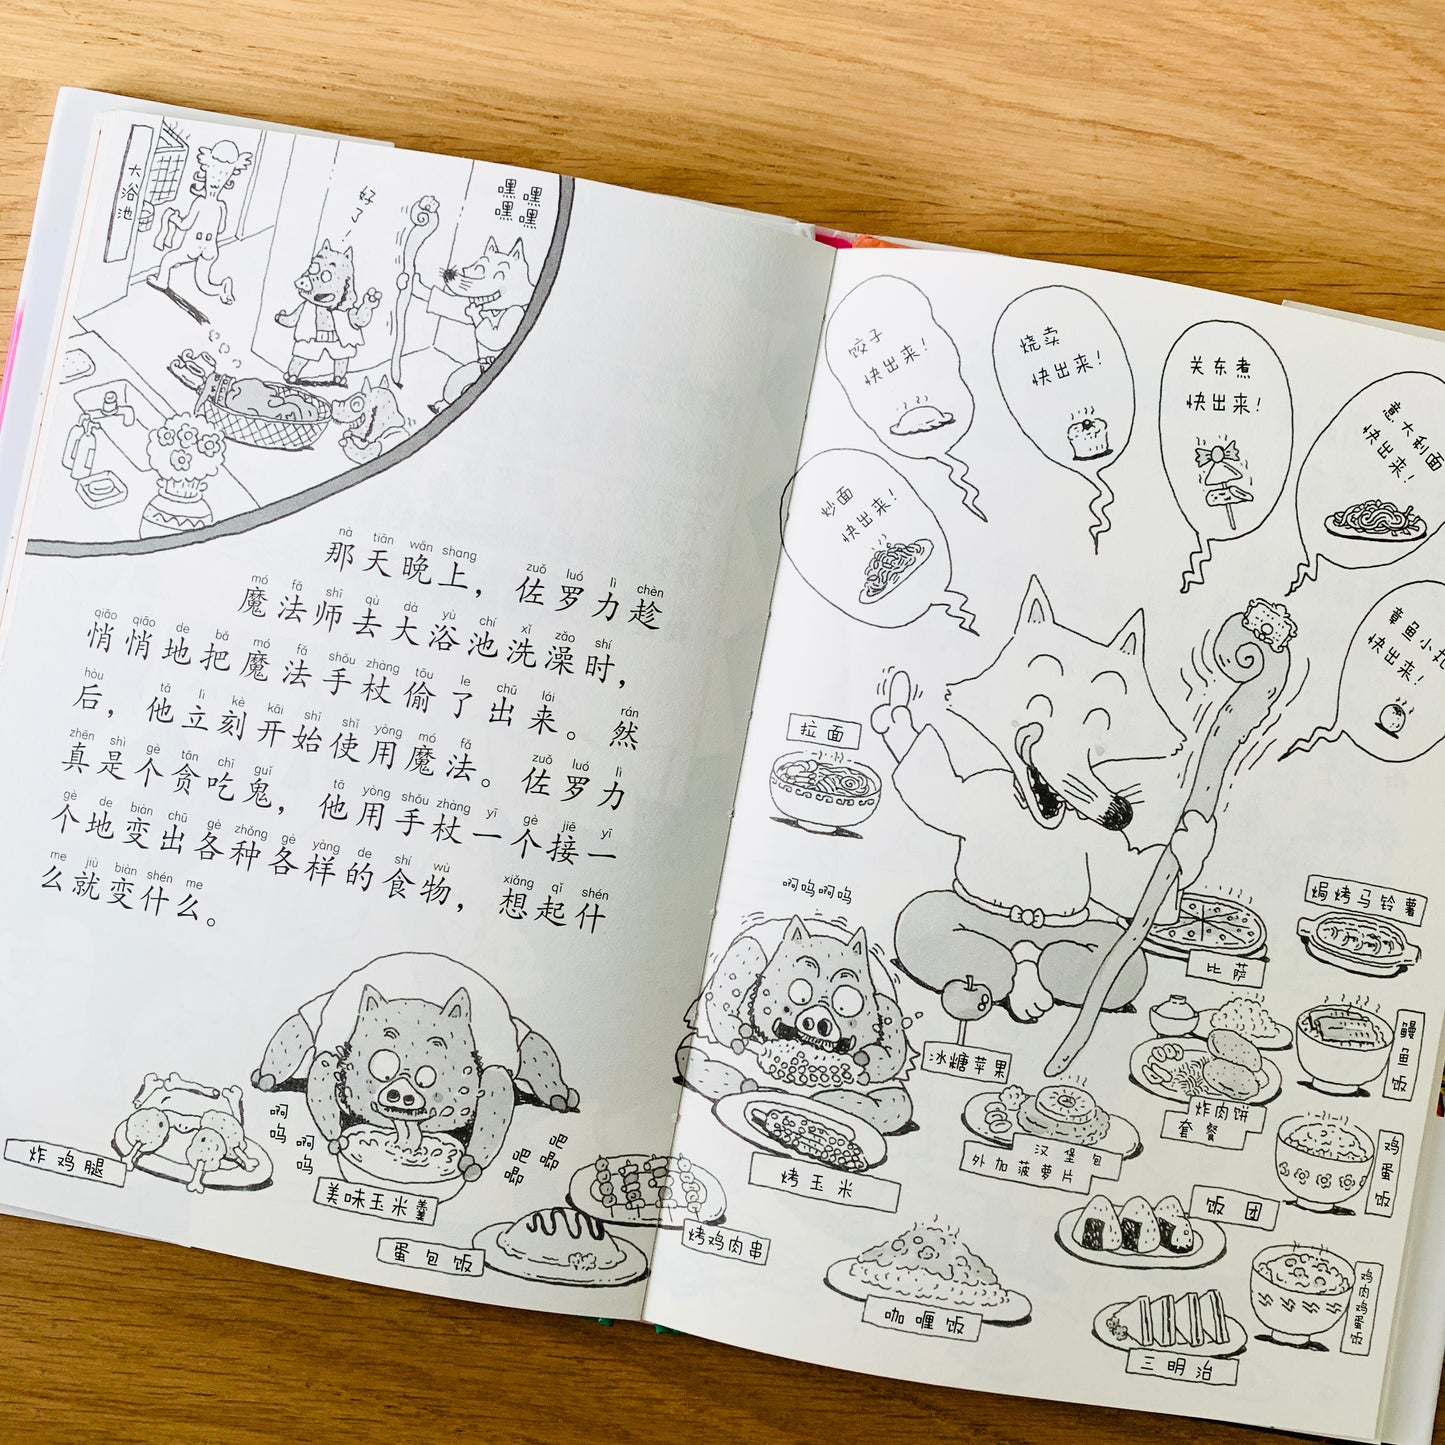 大浴池
好了
嘿嘿
嘿嘿
nà tiān wǎn shang zuǒ luó lì chèn
那天晚上，佐罗力趁
mó fǎ shī qù dà yù chí xǐ zǎo shí
魔法师去大浴池洗澡时，
qiāo qiāo de bǎ mó fǎ shǒu zhàng tōu le chū lái rán
悄悄地把魔法手杖偷了出来。然
hòu tā lì kè kāi shǐ shǐ yòng mó fǎ zuǒ luó lì
后，他立刻开始使用魔法。佐罗力
zhēn shì gè tān chī guǐ tā yòng shǒu zhàng yī gè jiē yī
真是个贪吃鬼，他用手杖一个接一
gè de biàn chū gè zhǒng gè yàng de shí wù xiǎng qǐ shén
个地变出各种各样的食物，想起什
me jiù biàn shén me
么就变什么。
炸鸡腿
啊呜
啊呜
美味玉米羹
吧唧
吧唧
蛋包饭
烤鸡肉串
饺子
快出来！
烧卖
快出来！
关东煮
快出来！
意大利面
快出来！
炒面
快出来！
章鱼小丸
快出来！
拉面
啊呜啊呜
比萨
焗烤马铃薯
冰糖苹果
鳗鱼饭
炸肉饼
套餐
汉堡包
外加菠萝片
烤玉米
鸡蛋饭
饭团
咖喱饭
鸡肉鸡蛋饭
三明治